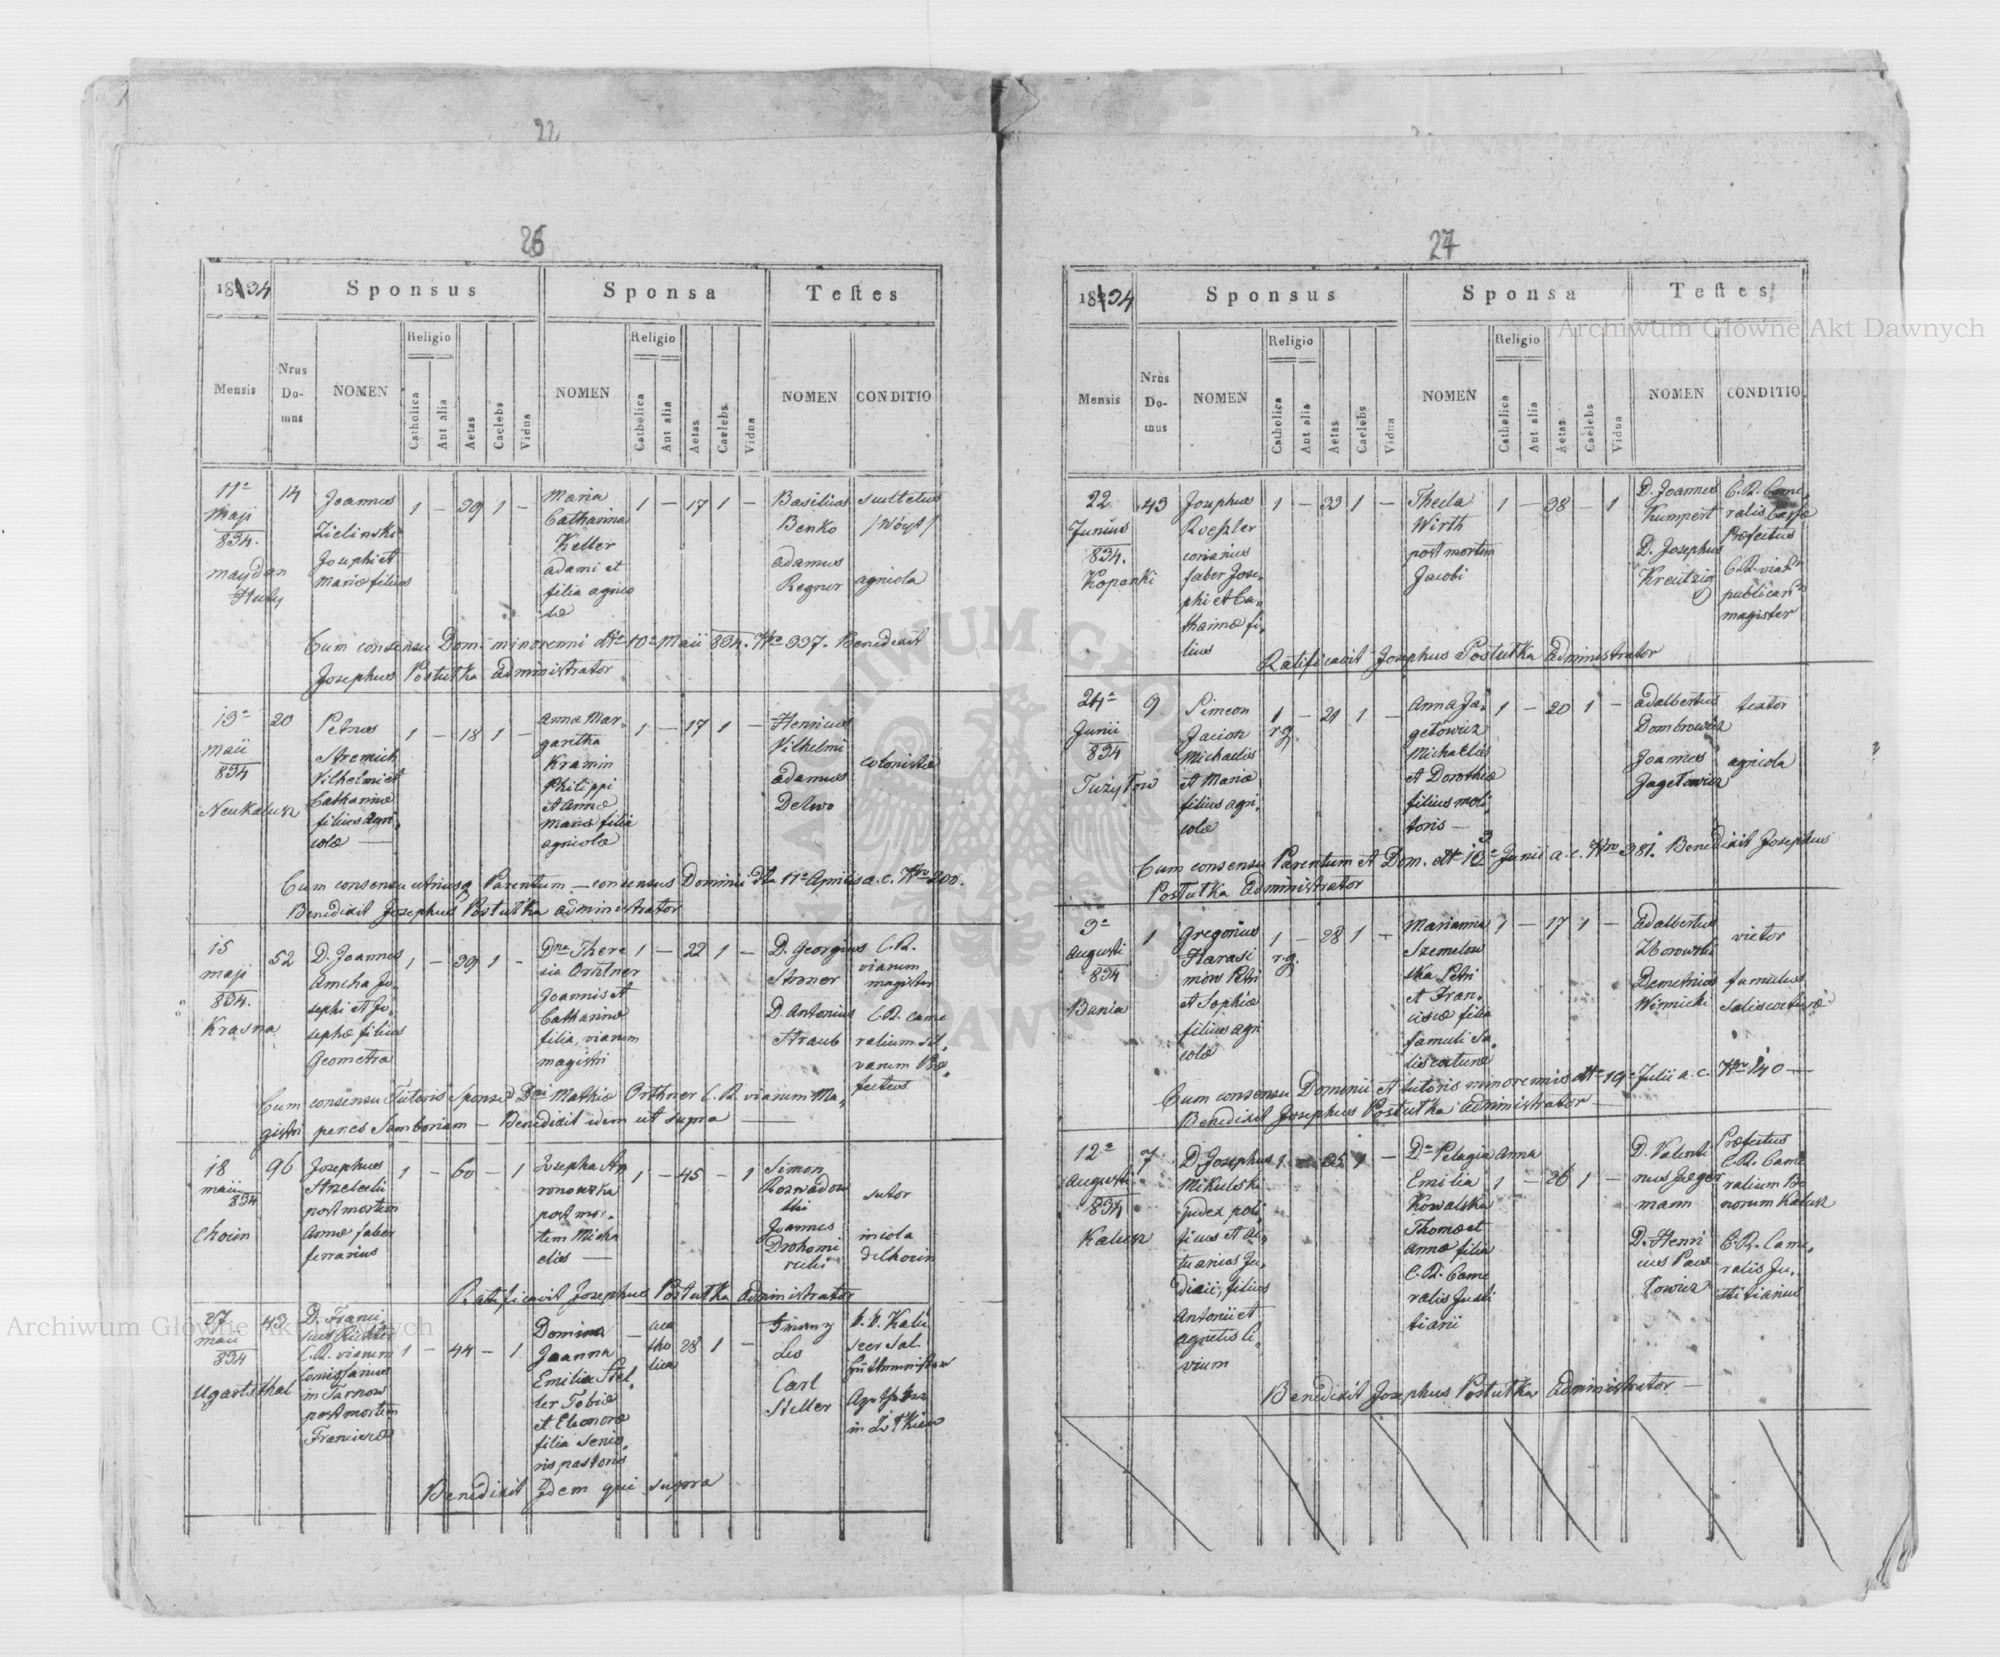 22
26
1834
Sponsus
Sponsa
Testes
Mensis
Nrus Do-mus
NOMEN
Religio
Catholica
Aut alia
Aetas
Caelebs
Vidua
NOMEN
Religio
Catholica
Aut alia
Aetas
Caelebs
Vidua
NOMEN
CONDITIO
11a
Maji
834.
Maydan
14
Joannes
Zielinski
Josephi et
Mariæ filius
1 — 39 1 —
Maria
Catharina
Keller
adami et
filia agrico
læ
1 — 17 1 —
Basilius
Benko
adamus
Regner
scultetus
/Wóyt/
agricola
Cum consensu Dom. minorenni dto 10a Maii 834. Nro 337. Benedixit
Josephus Postutka administrator
13a
maii
834
Neukalusz
20
Petrus
Stremich
Vilhelmi et
Catharinæ
filius agri,
colæ
1 — 18 1 —
Anna Mar-
garitha
Kramin
Philippi
et Annæ
Mariæ filia
agricolæ
1 — 17 1 —
Henricus
Vilhelmi
adamus
Delwo
colonistæ
Cum consensu utriusq Parentum — consensus Dominii dto 11a Aprilis a. c. Nro 200.
Benedixit Josephus Postutka administrator
15
maji
834.
Krasna
52
D. Joannes
Amcha Jo-
sephi et Jo-
sephæ filius
Geometra
1 — 39 1 —
Dna There
sia Ortner
Joannis et
Catharinæ
filia, viarum
magistri
1 — 22 1 —
D. Georgius
D. Antonius
Straub
C. R.
viarum
magister
C. R. came
ralium sil,
varum Præ,
fectus
Cum consensu Tutoris Sponsæ Dni Mathiæ Orthner C. R. viarum Ma,
gistri penes Samboriam — Benedixit idem ut supra
18
maii
834
Chocin
96
Josephus
Strzelecki
post mortem
Annæ faber
ferrarius
1 — 60 — 1
Josepha
post mor-
tem Micha
elis
1 — 45 — 1
Simon
Rozwadow
ski
Joannes
Drohomi
recki
sutor
incola
de Chocin
Ratificavit Josephus Postutka administrator
27
maii
834
Ugartsthal
43
D. Franci,
scus Richter
C. R. viarum
Comissarius
in Tarnow
post mortem
Franciscæ
1 — 44 — 1
Domina
Joanna
Emilia Stel-
ler Tobiæ
et Eleonoræ
filia Senio,
ris pastoris
— aca
tho
lica
28 1 —
Leo
Carl
Steller
Benedixit Idem qui supra
27
1834
Sponsus
Sponsa
Testes
Mensis
Nrus Do-mus
NOMEN
Religio
Catholica
Aut alia
Aetas
Caelebs
Vidua
NOMEN
Religio
Catholica
Aut alia
Aetas
Caelebs
Vidua
NOMEN
CONDITIO
22
Junius
834.
Kopanki
43
Josephus
Roessler
coriarius
faber Jose-
phi et Ca-
tharinæ fi-
lius
1 — 33 1 —
Thecla
Wirth
post mortem
Jacobi
1 — 38 — 1
D. Joannes
Kumpert
D. Josephus
Kreutzig
C. R. Came,
ralis
Præfectus
C. R. viar
publicar
magister
Ratificavit Josephus Postutka administrator
24a
Junii
834
Tużyłow
9
Simeon
Michaelis
et Mariæ
filius agri,
colæ
1 r. g. — 21 1 —
Anna Ja-
getowicz
Michaelis
et Dorotheæ
filius moli,
toris —
1 — 20 1 —
adalbertus
Dombrowicz
Joannes
Jagetowicz
textor
agricola
Cum consensu Parentum et Dom. dto 13a Junii a. c. Nro 381. Benedixit Josephus
Postutka administrator
3a
augusti
834
Bania
1
Gregorius
Harasi
mow Petri
et Sophiæ
filius agri
colæ
1 r. g. — 28 1 —
Marianna
Szemelow
ska Petri
et Fran-
ciscæ filia
famuli Sa,
liscocturæ
1 — 17 1 —
Adalbertus
Zborowski
Demetrius
Winnicki
vietor
famulus
saliscocturæ
Cum consensu Dominii et tutoris minorennis dto 19a Julii a. c. Nro 140 —
Benedixit Josephus Postutka administrator
12a
augusti
834
Kalusz
7
D. Josephus
Mikulski
judex poli,
ticus et ac,
tuarius Ju,
dicii, filius
Antonii et
agnetis ci-
vium
1 — 35 1 —
Da Pelagia Anna
Emilia
Kowalska
Thomæ et
Annæ filia
C. R. Came
ralis Justi
tiarii
1 — 26 1 —
D. Valenti
nus Jaeger
mann
D. Henri
cus Paw
towicz
Præfectus
C. R. Came
ralium Bo
norum Kalusz
C. R. Came,
ralis Ju,
stitiarius
Benedixit Josephus Postutka administrator —
Archiwum Główne Akt Dawnych
Archiwum Główne Akt Dawnych